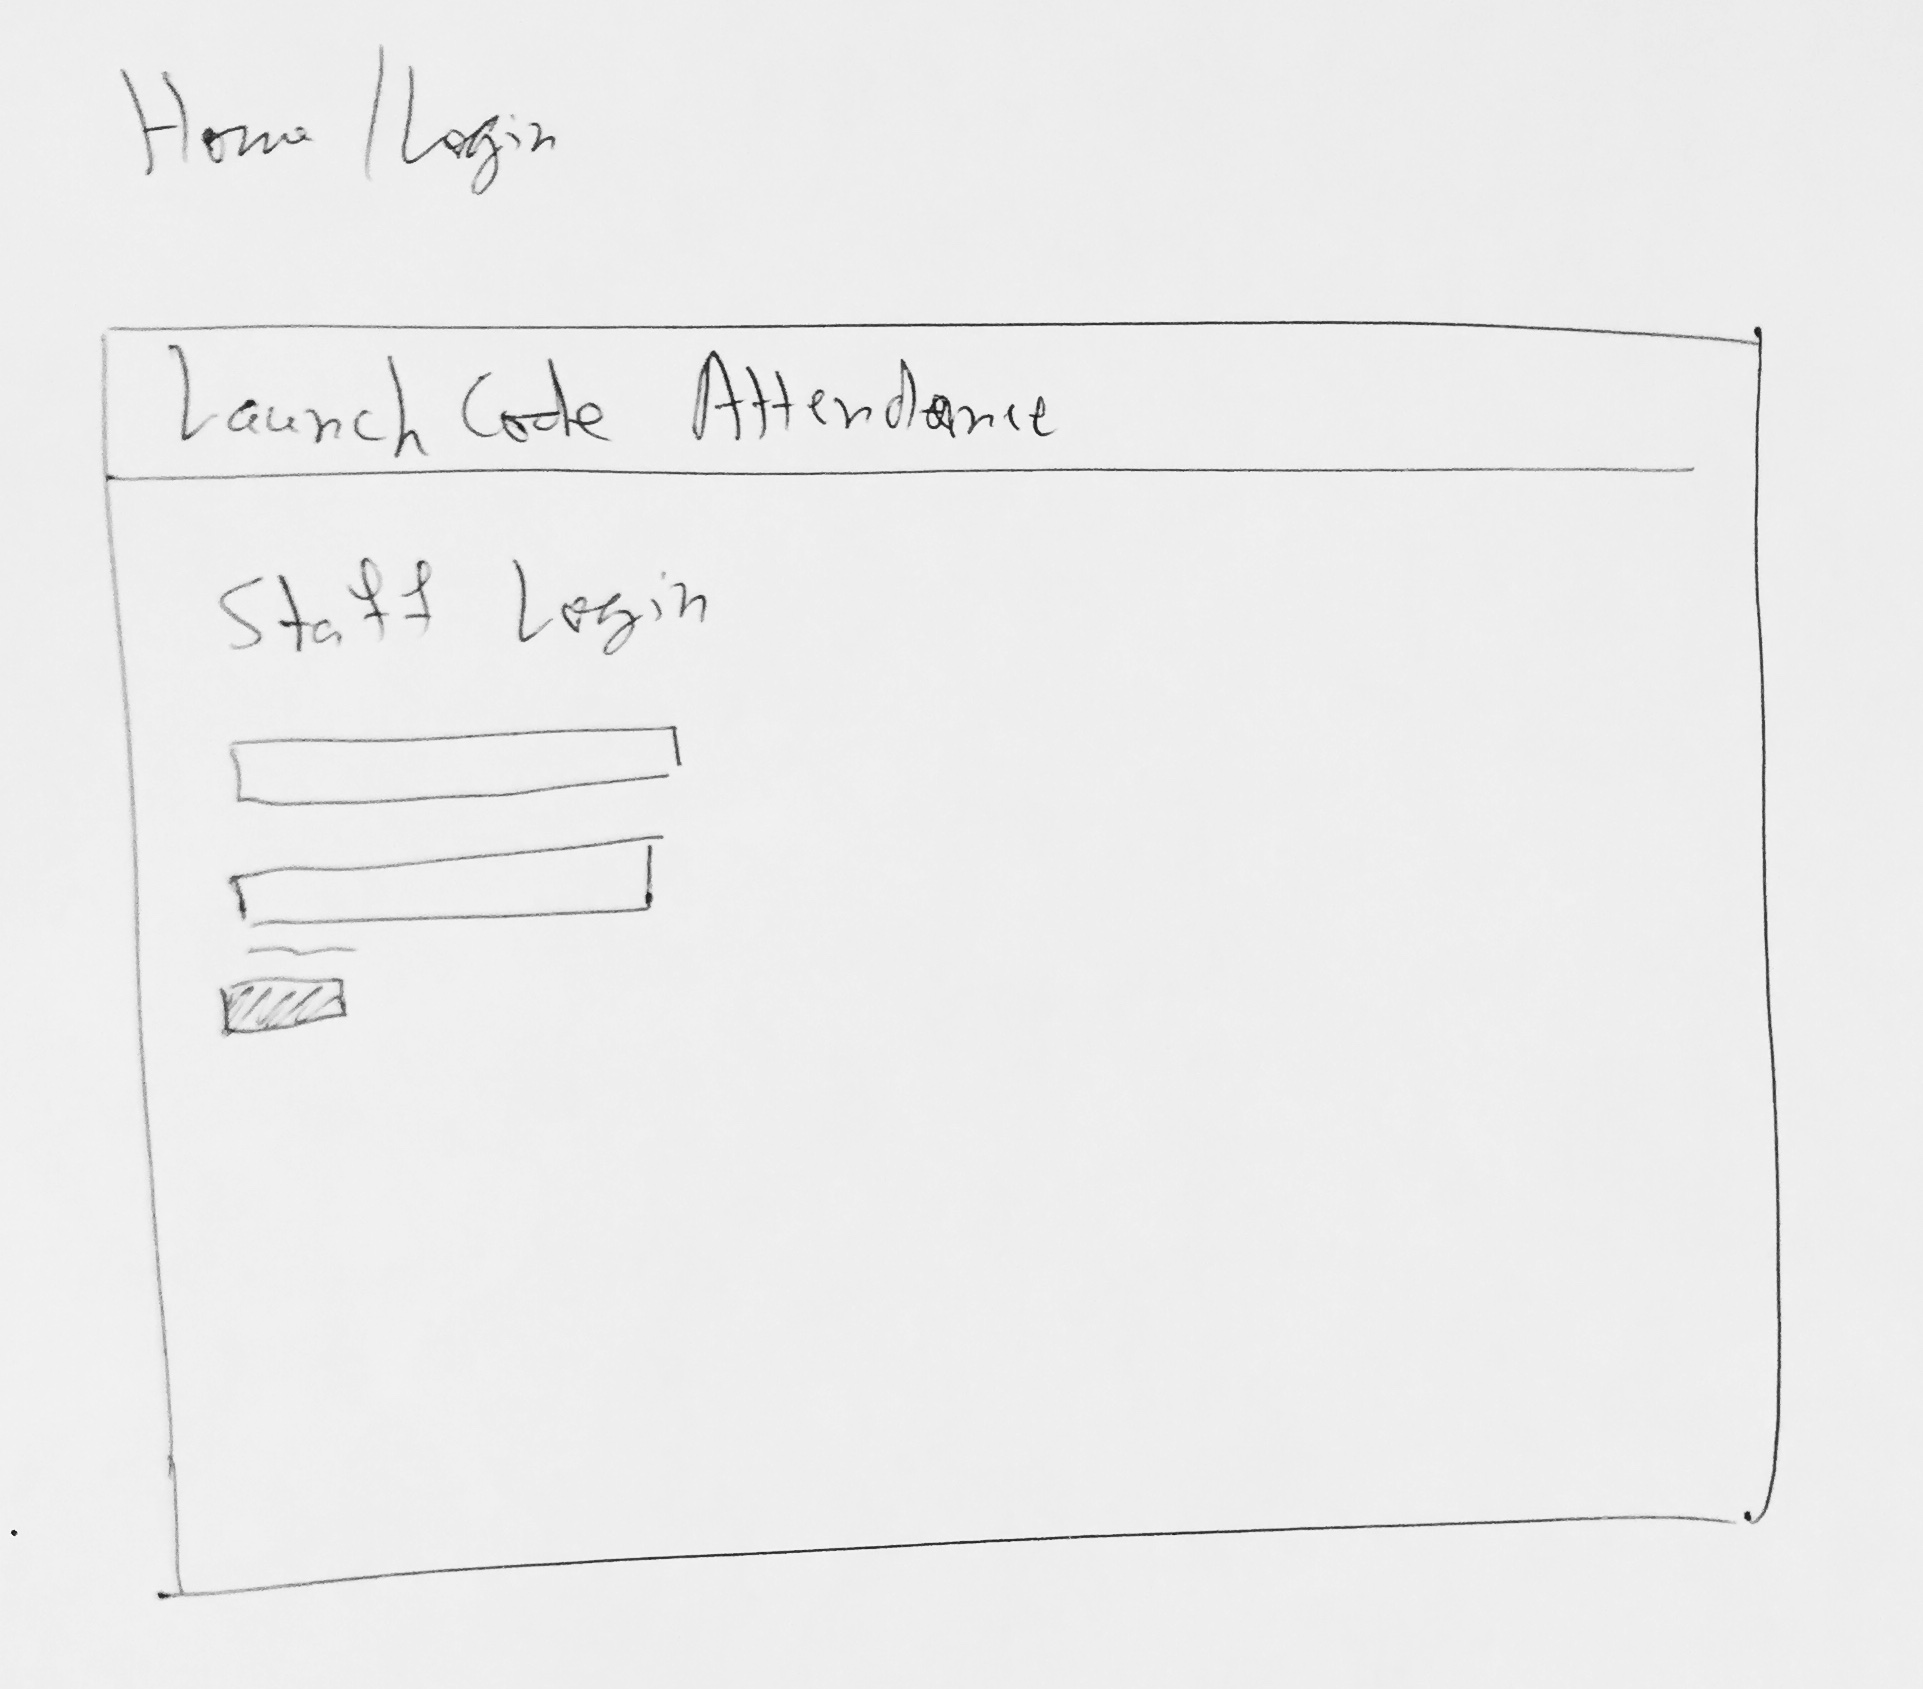 Home / Login
Launch Code Attendance
Staff Login